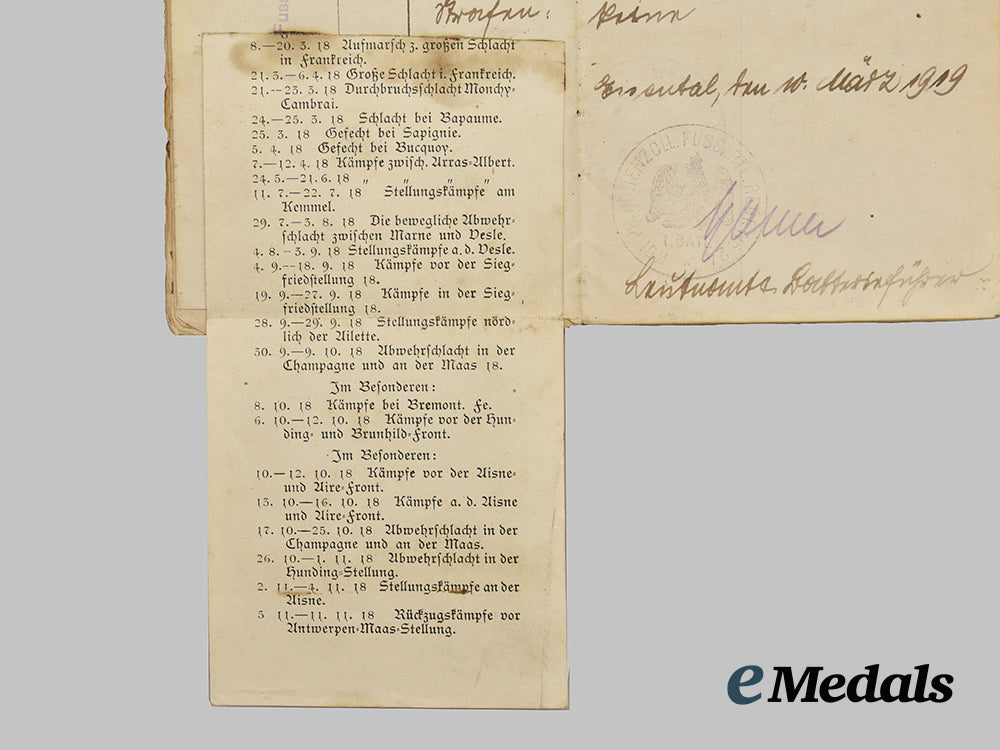 Strafen: keine
den 10. März 1919
8.—20. 3. 18 Aufmarsch z. großen Schlacht
in Frankreich.
21. 3.—6. 4. 18 Große Schlacht i. Frankreich.
21.—23. 3. 18 Durchbruchsschlacht Monchy-
Cambrai.
24.—25. 3. 18 Schlacht bei Bapaume.
25. 3. 18 Gefecht bei Sapignie.
5. 4. 18 Gefecht bei Bucquoy.
7.—12. 4. 18 Kämpfe zwisch. Arras-Albert.
24. 5.—21. 6. 18 " " " "
11. 7.—22. 7. 18 Stellungskämpfe am
Kemmel.
29. 7.—3. 8. 18 Die bewegliche Abwehr-
schlacht zwischen Marne und Vesle.
4. 8.—3. 9. 18 Stellungskämpfe a. d. Vesle.
4. 9.—18. 9. 18 Kämpfe vor der Sieg-
friedstellung 18.
19. 9.—27. 9. 18 Kämpfe in der Sieg-
friedstellung 18.
28. 9.—29. 9. 18 Stellungskämpfe nörd-
lich der Ailette.
30. 9.—9. 10. 18 Abwehrschlacht in der
Champagne und an der Maas 18.
Im Besonderen:
8. 10. 18 Kämpfe bei Bremont. Fe.
6. 10.—12. 10. 18 Kämpfe vor der Hun-
ding- und Brunhild-Front.
Im Besonderen:
10.—12. 10. 18 Kämpfe vor der Aisne-
und Aire-Front.
13. 10.—16. 10. 18 Kämpfe a. d. Aisne
und Aire-Front.
17. 10.—25. 10. 18 Abwehrschlacht in der
Champagne und an der Maas.
26. 10.—1. 11. 18 Abwehrschlacht in der
Hunding-Stellung.
2. 11.—4. 11. 18 Stellungskämpfe an der
Aisne.
5 11.—11. 11. 18 Rückzugskämpfe vor
Antwerpen-Maas-Stellung.
HOHENZOLL. FUSSART. R
1. BATL.
Leutnant u. Batterieführer
eMedals